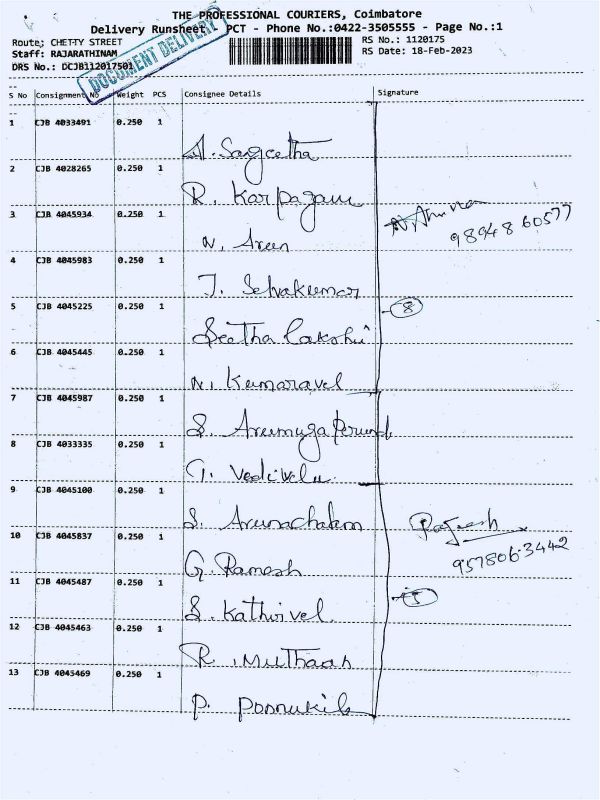 THE PROFESSIONAL COURIERS, Coimbatore
Delivery Runsheet PCT - Phone No.:0422-3505555 - Page No.:1
Route: CHETTY STREET
RS No.: 1120175
Staff: RAJARATHINAM
RS Date: 18-Feb-2023
DRS No.: DCJB112017501
DOCUMENT DELIVERY
S No Consignment No Weight PCS Consignee Details Signature
1 CJB 4033491 0.250 1
A. Sangeetha
2 CJB 4028265 0.250 1
R. Karpagam
3 CJB 4045934 0.250 1
98948 60577
N. Arun
4 CJB 4045983 0.250 1
J. Selvakumar
5 CJB 4045225 0.250 1
8
Seetha Lakshmi
6 CJB 4045445 0.250 1
N. Kumaravel
7 CJB 4045987 0.250 1
S. Arumuga Perumal
8 CJB 4033335 0.250 1
G. Vadivelu
9 CJB 4045100 0.250 1
S. Arunachalam
Rajesh
10 CJB 4045837 0.250 1
957806 3442
G. Ramesh
11 CJB 4045487 0.250 1
5
S. Kathirvel
12 CJB 4045463 0.250 1
R. Muthaah
13 CJB 4045469 0.250 1
P.